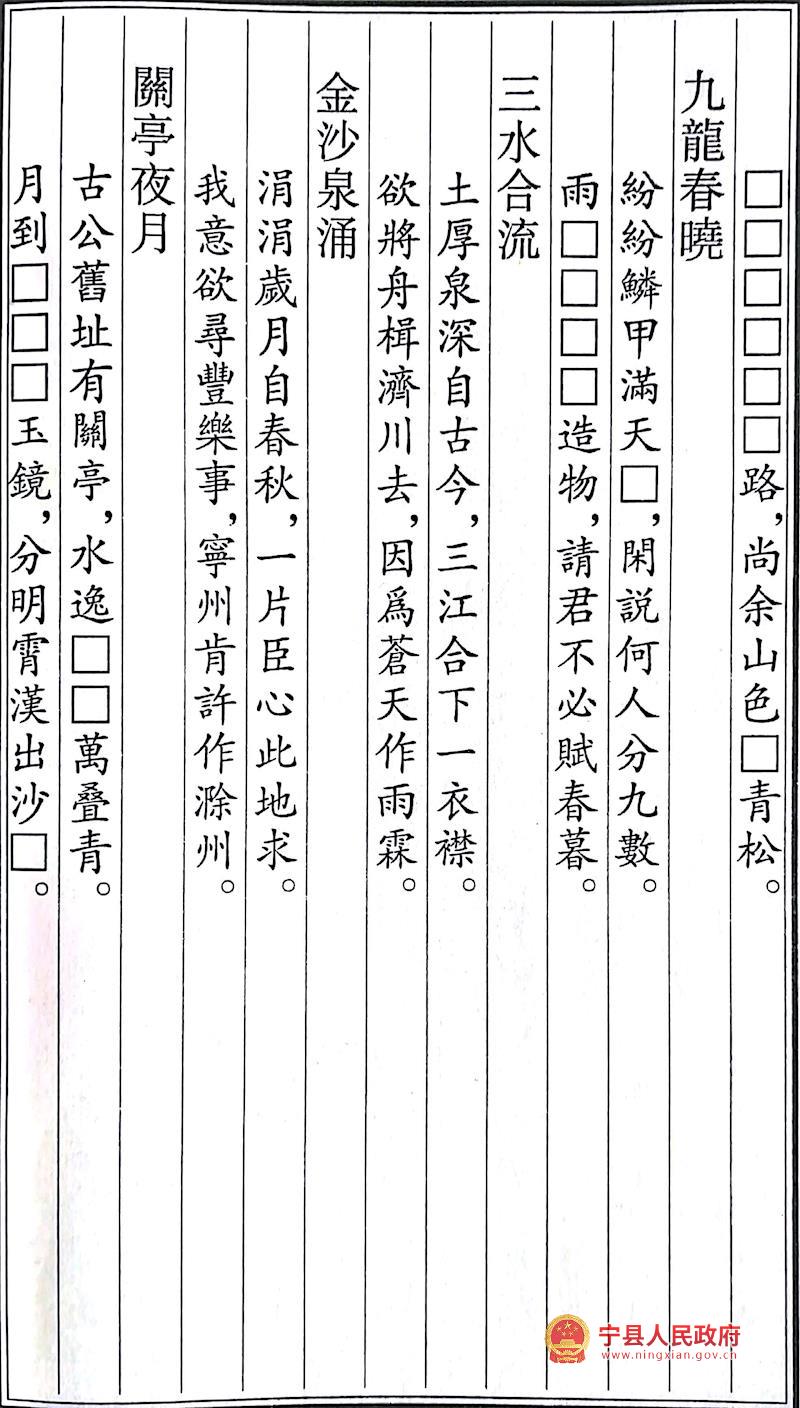 □□□□□□路，尚余山色□青松。
九龍春曉
紛紛鱗甲滿天□，閑説何人分九數。
雨□□□□造物，請君不必賦春暮。
三水合流
土厚泉深自古今，三江合下一衣襟。
欲將舟楫濟川去，因爲蒼天作雨霖。
金沙泉涌
涓涓歲月自春秋，一片臣心此地求。
我意欲尋豐樂事，寧州肯許作滁州。
關亭夜月
古公舊址有關亭，水逸□□萬叠青。
月到□□□玉鏡，分明霄漢出沙□。
宁县人民政府
www.ningxian.gov.cn